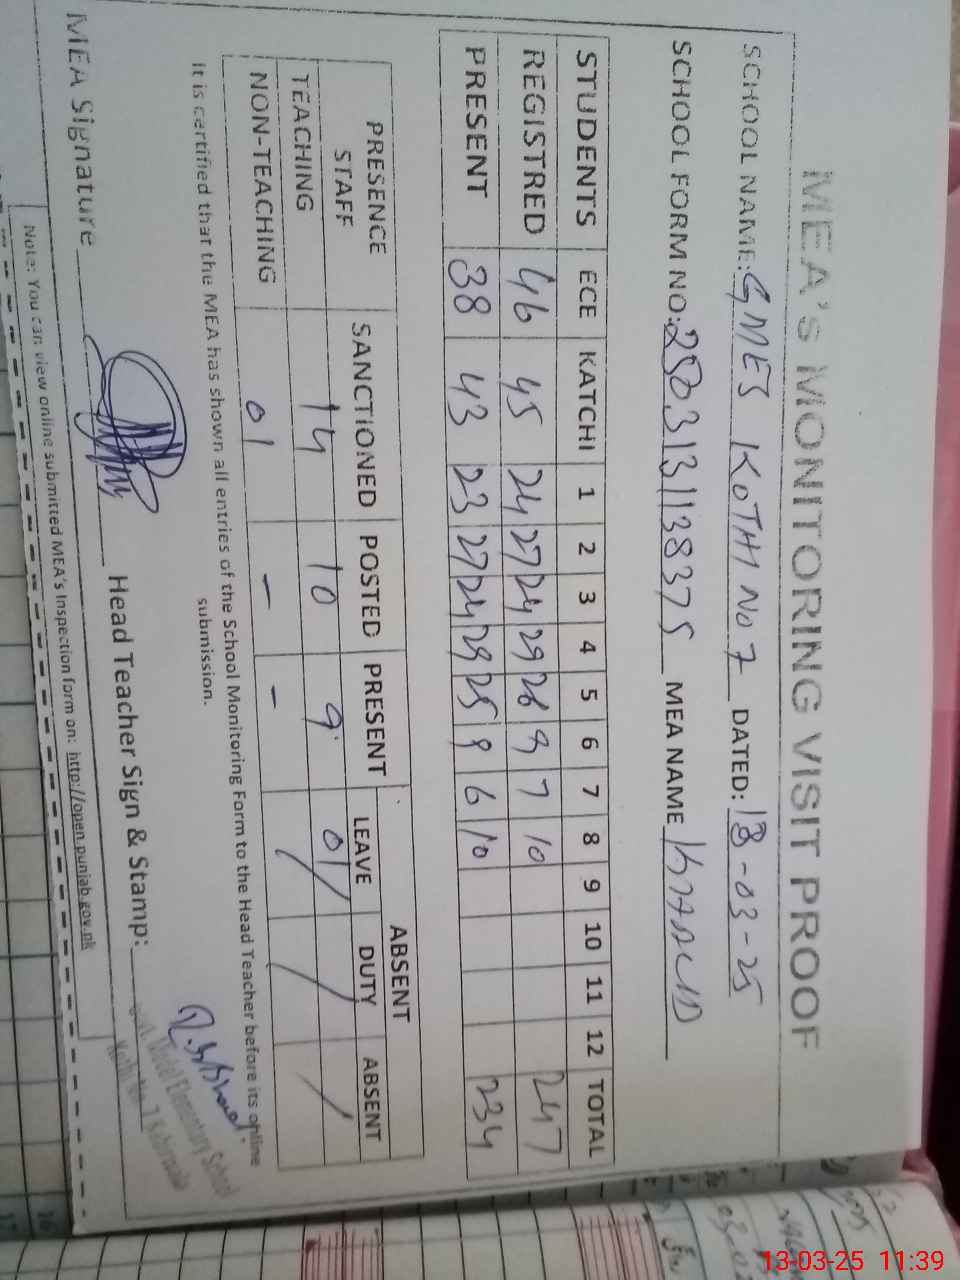 MEA's MONITORING VISIT PROOF
SCHOOL NAME: GMES KOTHI No 7 DATED: 13-03-25
SCHOOL FORM NO: MEA NAME KHALID
STUDENTS ECE KATCHI 1 2 3 4 5 6 7 8 9 10 11 12 TOTAL
REGISTRED 46 45 24 27 24 29 26 9 7 10 247
PRESENT 38 43 23 27 24 29 25 9 6 10 234
PRESENCE STAFF SANCTIONED POSTED PRESENT ABSENT
LEAVE DUTY ABSENT
TEACHING 14 10 9 01 / /
NON-TEACHING 01 - - /
It is certified that the MEA has shown all entries of the School Monitoring Form to the Head Teacher before its online
submission.
MEA Signature Head Teacher Sign & Stamp:
Model Elementary School
Kothi No. 7
Note: You can view online submitted MEA's Inspection form on: http://open.punjab.gov.pk
13-03-25 11:39